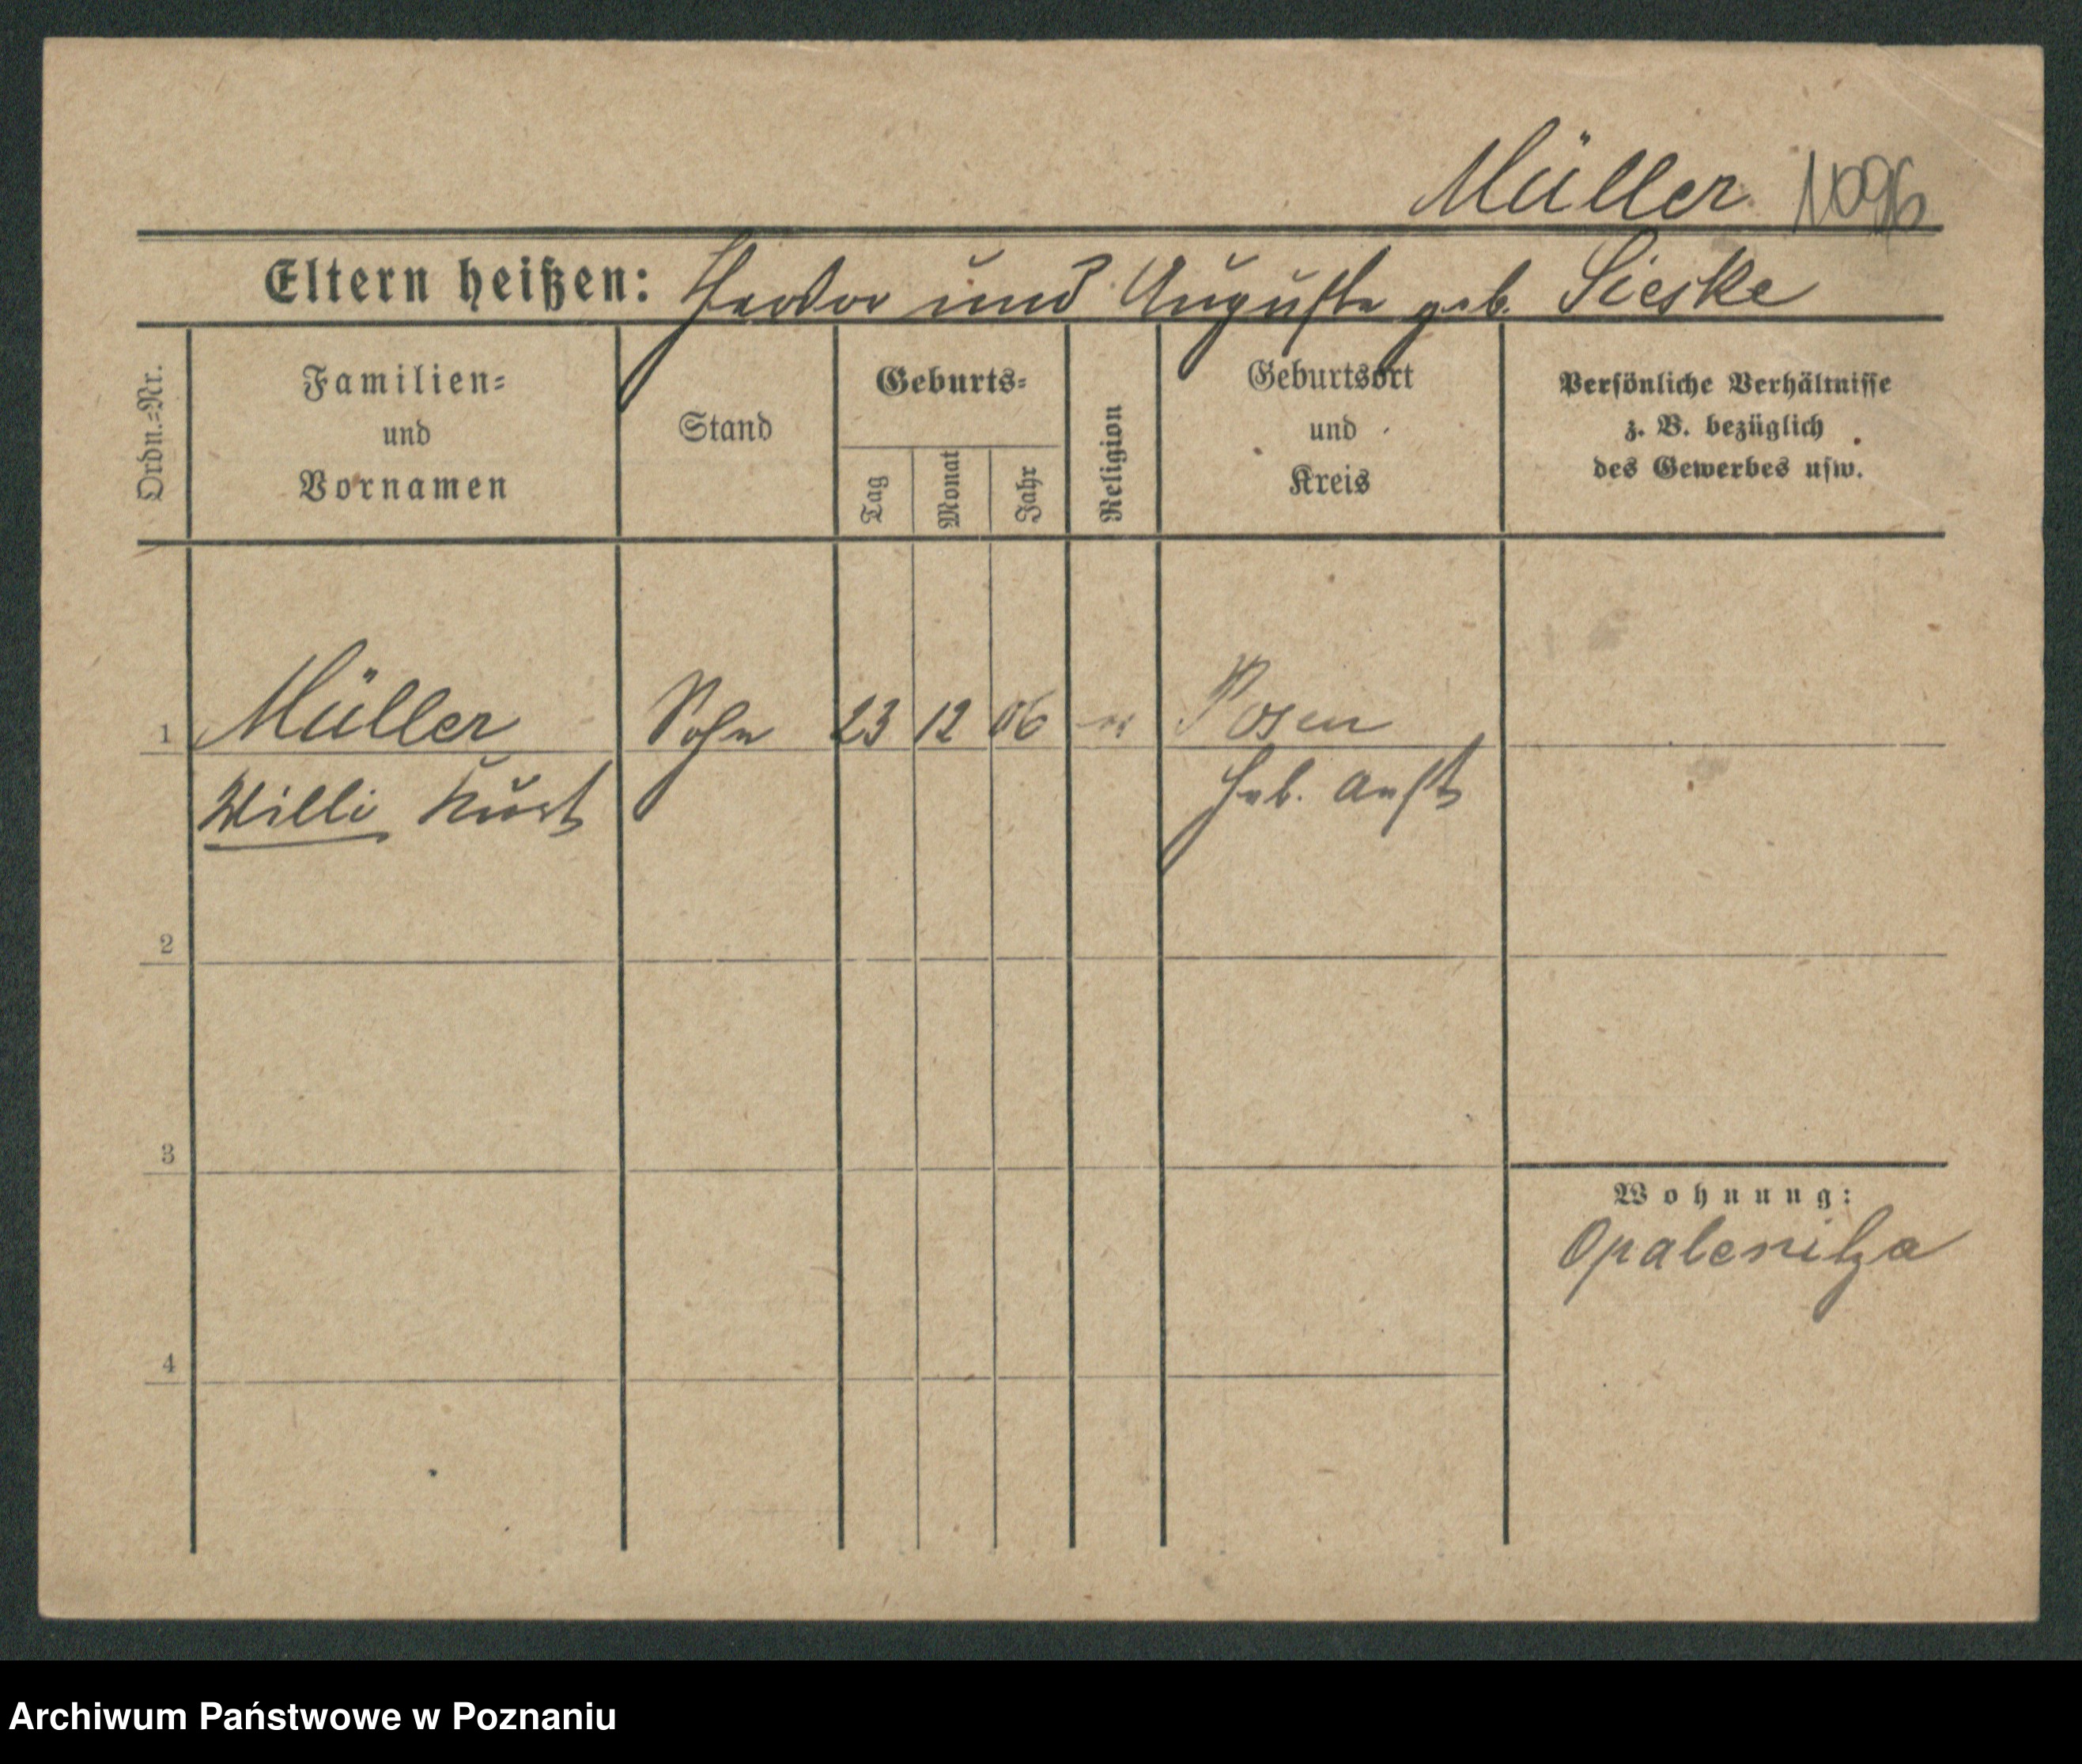 Müller 1096
Eltern heißen: Theodor und Auguste geb. Sieske
Ordn.=Nr.
Familien=
und
Vornamen
Stand
Geburts=
Tag
Monat
Jahr
Religion
Geburtsort
und
Kreis
Persönliche Verhältnisse
z. B. bezüglich
des Gewerbes usw.
1 Müller Sohn 23 12 06 Posen
Willi Kurt Heb. Anst
2
3
Wohnung:
Opalenitza
4
Archiwum Państwowe w Poznaniu